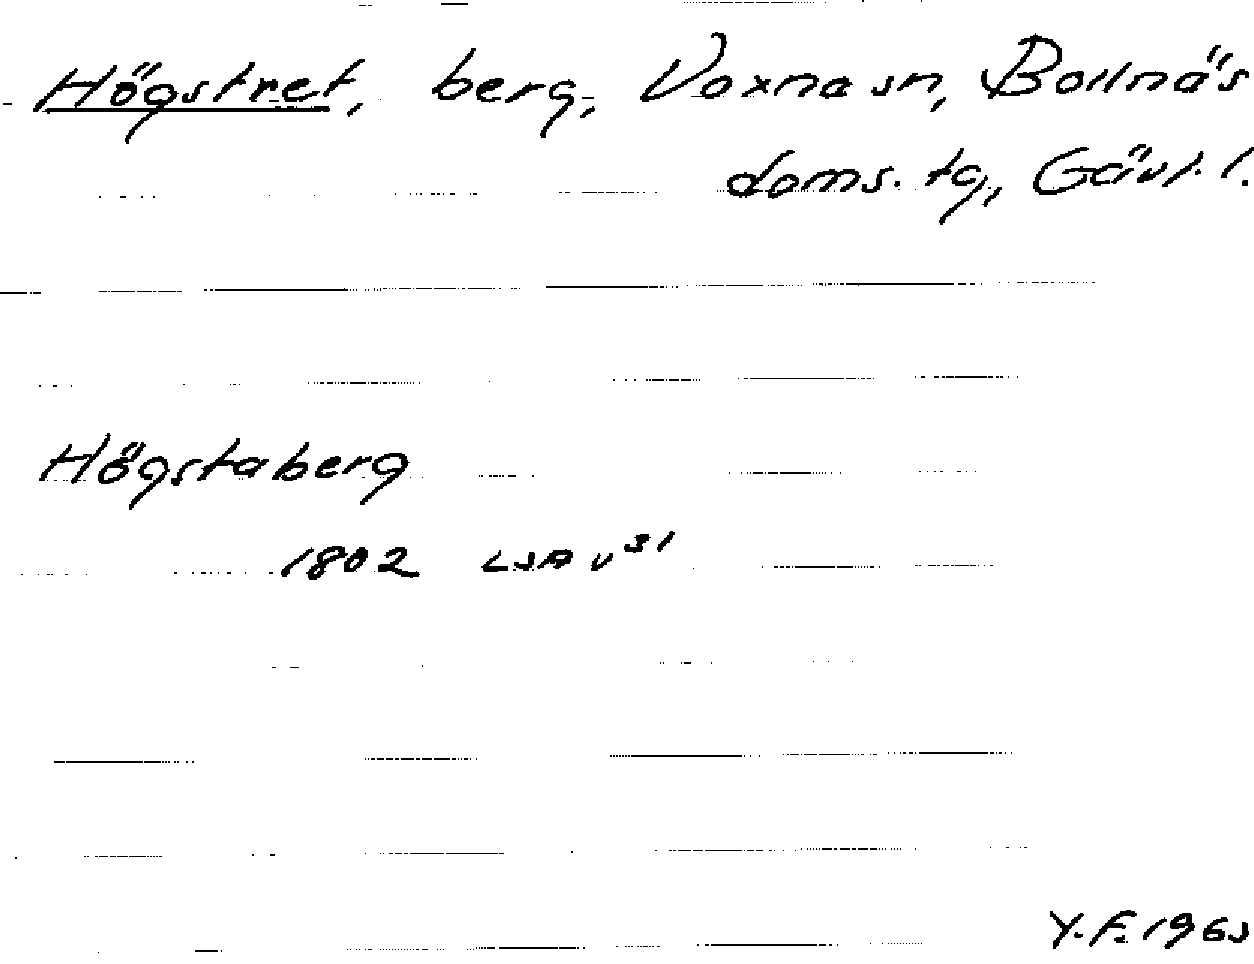 Högstret, berg, Voxna sn, Bollnäs
doms. tg, Gävl. l.
Högstaberg
1802 LSA v 31
Y.F. 1963